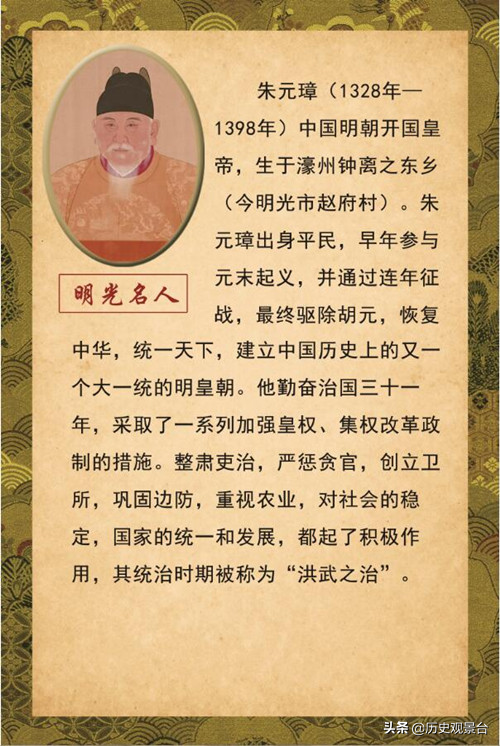 朱元璋（1328年—
1398年）中国明朝开国皇
帝，生于濠州钟离之东乡
（今明光市赵府村）。朱
元璋出身平民，早年参与
元末起义，并通过连年征
战，最终驱除胡元，恢复
中华，统一天下，建立中国历史上的又一
个大一统的明皇朝。他勤奋治国三十一
年，采取了一系列加强皇权、集权改革政
制的措施。整肃吏治，严惩贪官，创立卫
所，巩固边防，重视农业，对社会的稳
定，国家的统一和发展，都起了积极作
用，其统治时期被称为“洪武之治”。
明光名人
头条 @历史观景台